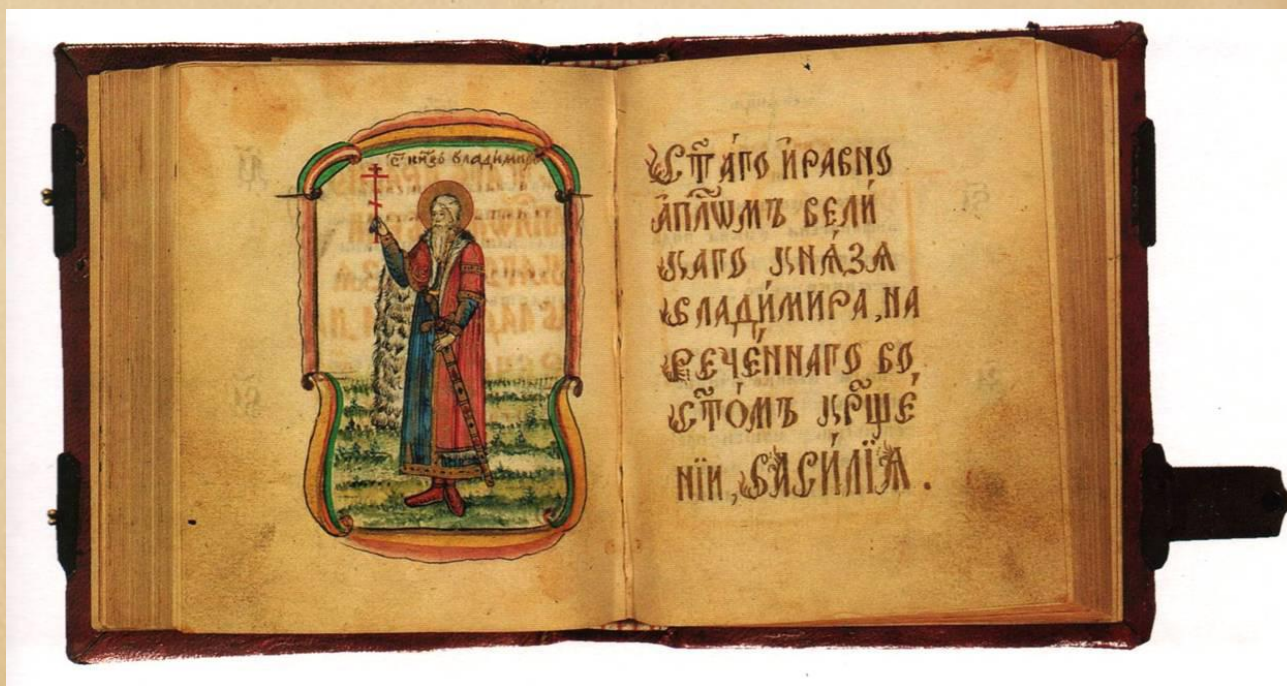 С҃ кн҃зь владимиръ
Ст҃а́го и҆ равно
а҆пл҃ѡмъ вели́
каго кнѧ́зѧ
владимира, на
рече́ннаго во
ст҃о́мъ кр҃ще́
нїи, васи́лїѧ.